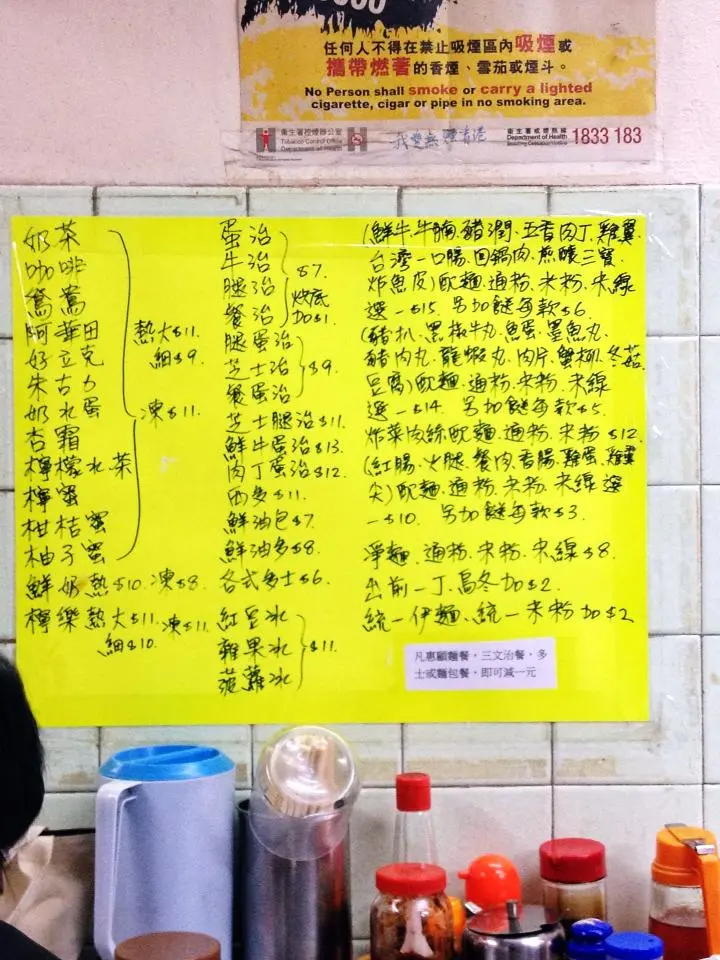 任何人不得在禁止吸煙區內吸煙或
攜帶燃著的香煙、雪茄或煙斗。
No Person shall smoke or carry a lighted
cigarette, cigar or pipe in no smoking area.
衞生署控煙辦公室
Tobacco Control Office
Department of Health
我愛無煙香港
衞生署戒煙熱線
Department of Health
1833 183
奶茶
咖啡
鴛鴦
阿華田
好立克
朱古力
奶水蛋
杏霜
檸檬水茶
檸蜜
柑桔蜜
柚子蜜
熱大$11.
細$9.
凍$11.
鮮奶熱$10. 凍$8.
檸樂熱大$11. 凍$11.
細$10.
蛋治
牛治
腿治
餐治
$7.
炆底
加$1.
腿蛋治
芝士治
餐蛋治
$9.
芝士腿治$11.
鮮牛蛋治$13.
肉丁蛋治$12.
西多$11.
鮮油包$7.
鮮油多$8.
各式多士$6.
紅豆冰
雜果冰
菠蘿冰
$11.
(鮮牛.牛腩.豬潤.五香肉丁.雞翼.
台灣一口腸.回鍋肉.煎釀三寶.
炸魚皮)歐麵.通粉.米粉.米線
選一$15. 另加餸每款$6.
(豬扒.黑椒牛丸.魚蛋.墨魚丸.
豬肉丸.龍蝦丸.肉片.蟹柳.冬菇.
豆腐)歐麵.通粉.米粉.米線
選一$14. 另加餸每款$5.
炸菜肉絲歐麵.通粉.米粉$12.
(紅腸.火腿.餐肉.香腸.雞蛋.雞翼
尖)歐麵.通粉.米粉.米線選
一$10. 另加餸每款$3.
淨麵.通粉.米粉.米線$8.
出前一丁.烏冬加$2.
統一伊麵、統一米粉加$2
凡惠顧麵餐，三文治餐，多
士或麵包餐，即可減一元